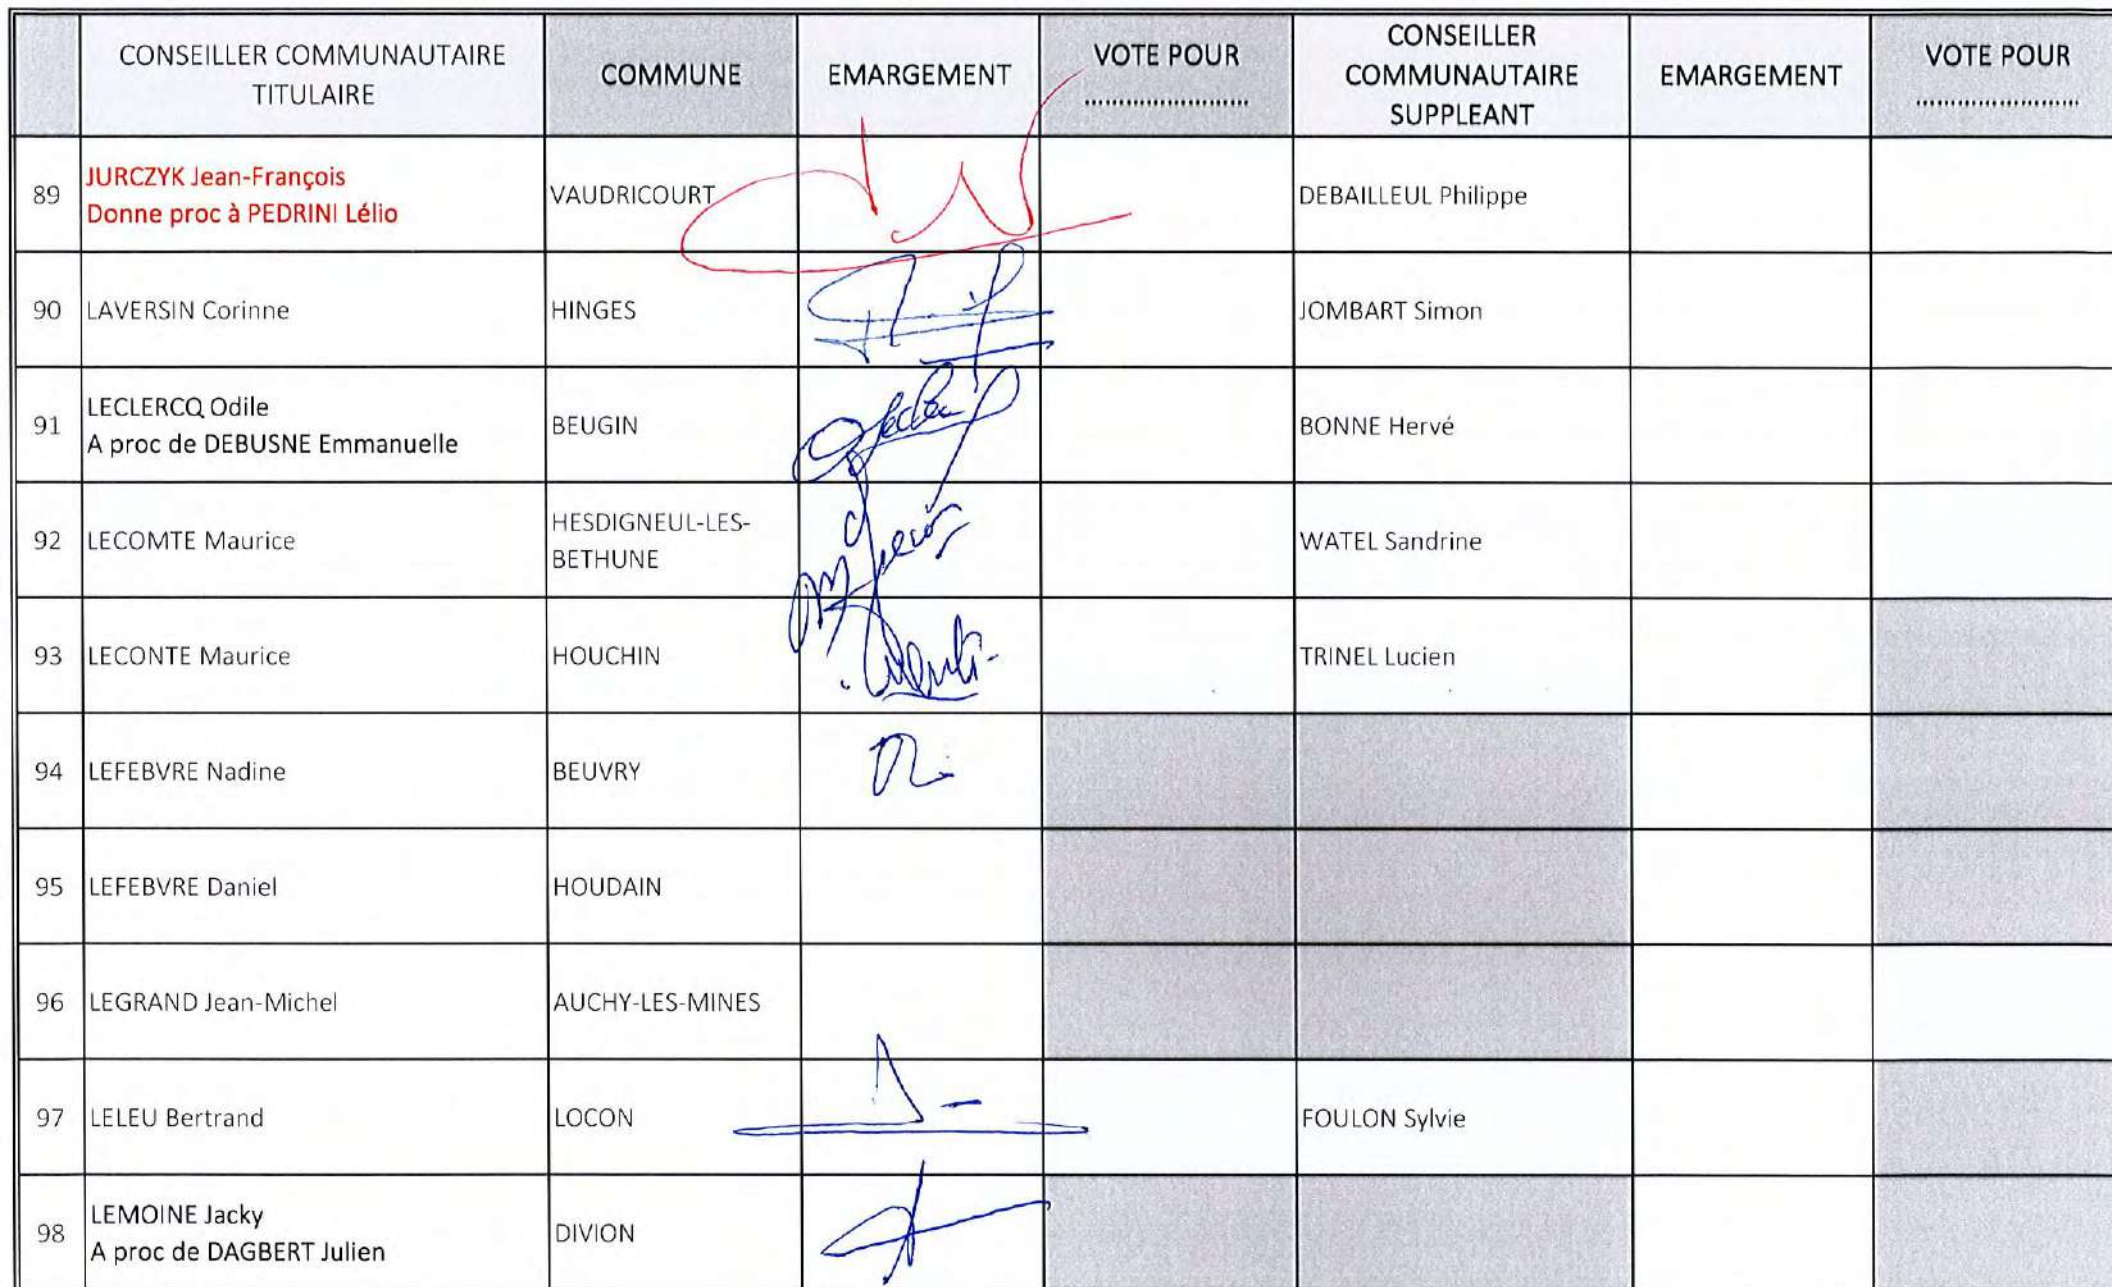 CONSEILLER COMMUNAUTAIRE
TITULAIRE
COMMUNE
EMARGEMENT
VOTE POUR
........................
CONSEILLER
COMMUNAUTAIRE
SUPPLEANT
EMARGEMENT
VOTE POUR
........................
89
JURCZYK Jean-François
Donne proc à PEDRINI Lélio
VAUDRICOURT
DEBAILLEUL Philippe
90
LAVERSIN Corinne
HINGES
JOMBART Simon
91
LECLERCQ Odile
A proc de DEBUSNE Emmanuelle
BEUGIN
BONNE Hervé
92
LECOMTE Maurice
HESDIGNEUL-LES-
BETHUNE
WATEL Sandrine
93
LECONTE Maurice
HOUCHIN
TRINEL Lucien
94
LEFEBVRE Nadine
BEUVRY
95
LEFEBVRE Daniel
HOUDAIN
96
LEGRAND Jean-Michel
AUCHY-LES-MINES
97
LELEU Bertrand
LOCON
FOULON Sylvie
98
LEMOINE Jacky
A proc de DAGBERT Julien
DIVION